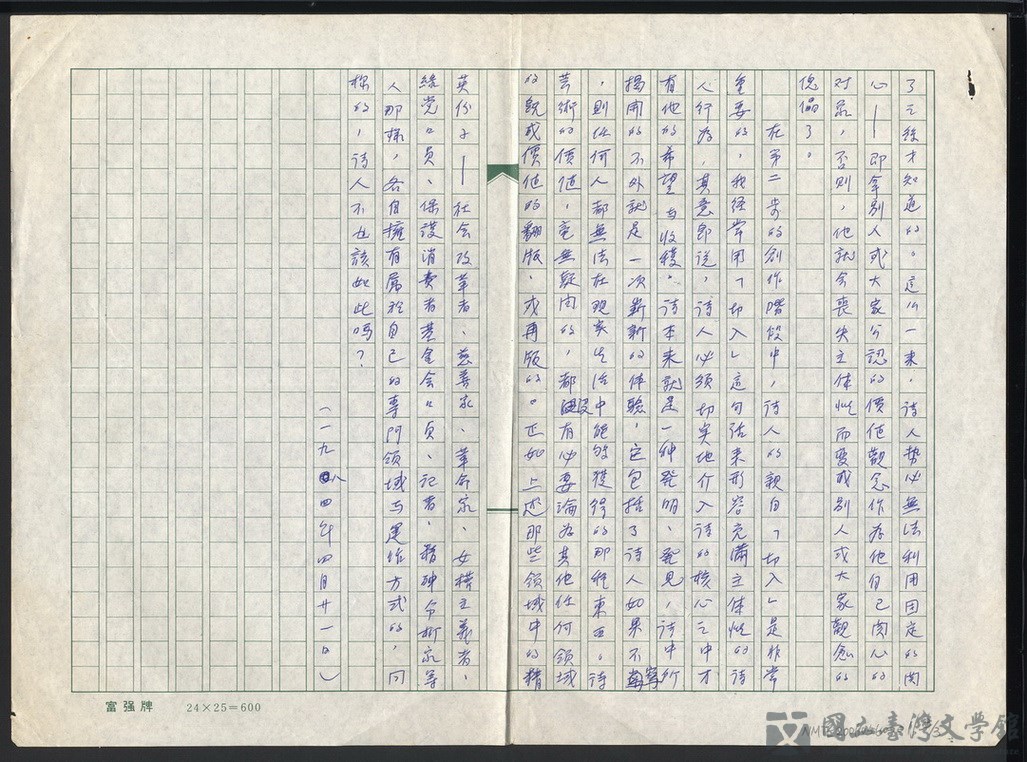 了之後才知道的。這麼一來，詩人勢必無法利用固定的關
心——即拿別人或大家公認的價值觀念作為他自己關心的
對象，否則，他就會喪失主体性而變成別人或大家觀念的
傀儡了。
在第二步的創作階段中，詩人的親自「切入」是非常
重要的，我經常用「切入」這句話來形容充滿主体性的詩
人行為，其意即說，詩人必須切实地介入詩的核心之中才
有他的希望与收穫。詩本來就是一种発明、発見，詩中所
揭開的不外就是一次新新的体驗，它包括了詩人如果不寫
，則任何人都無法在現实生活中能够獲得的那種東西。詩
芸術的價值，毫無疑問的，都沒有必要淪為其他任何領域
的貌或價值的翻版、或再版的。正如上述那些領域中的精
英份子——社会改革者、慈善家、革命家、女權主義者、
綠党党員、保護消費者基金会会員、記者、精神分析家等
人那樣，各自擁有屬於自己的專門領域与運作方式的，同
樣的，詩人不也該如此嗎？
（一九八四年四月廿一日）
富强牌 24×25=600
國立臺灣文學館